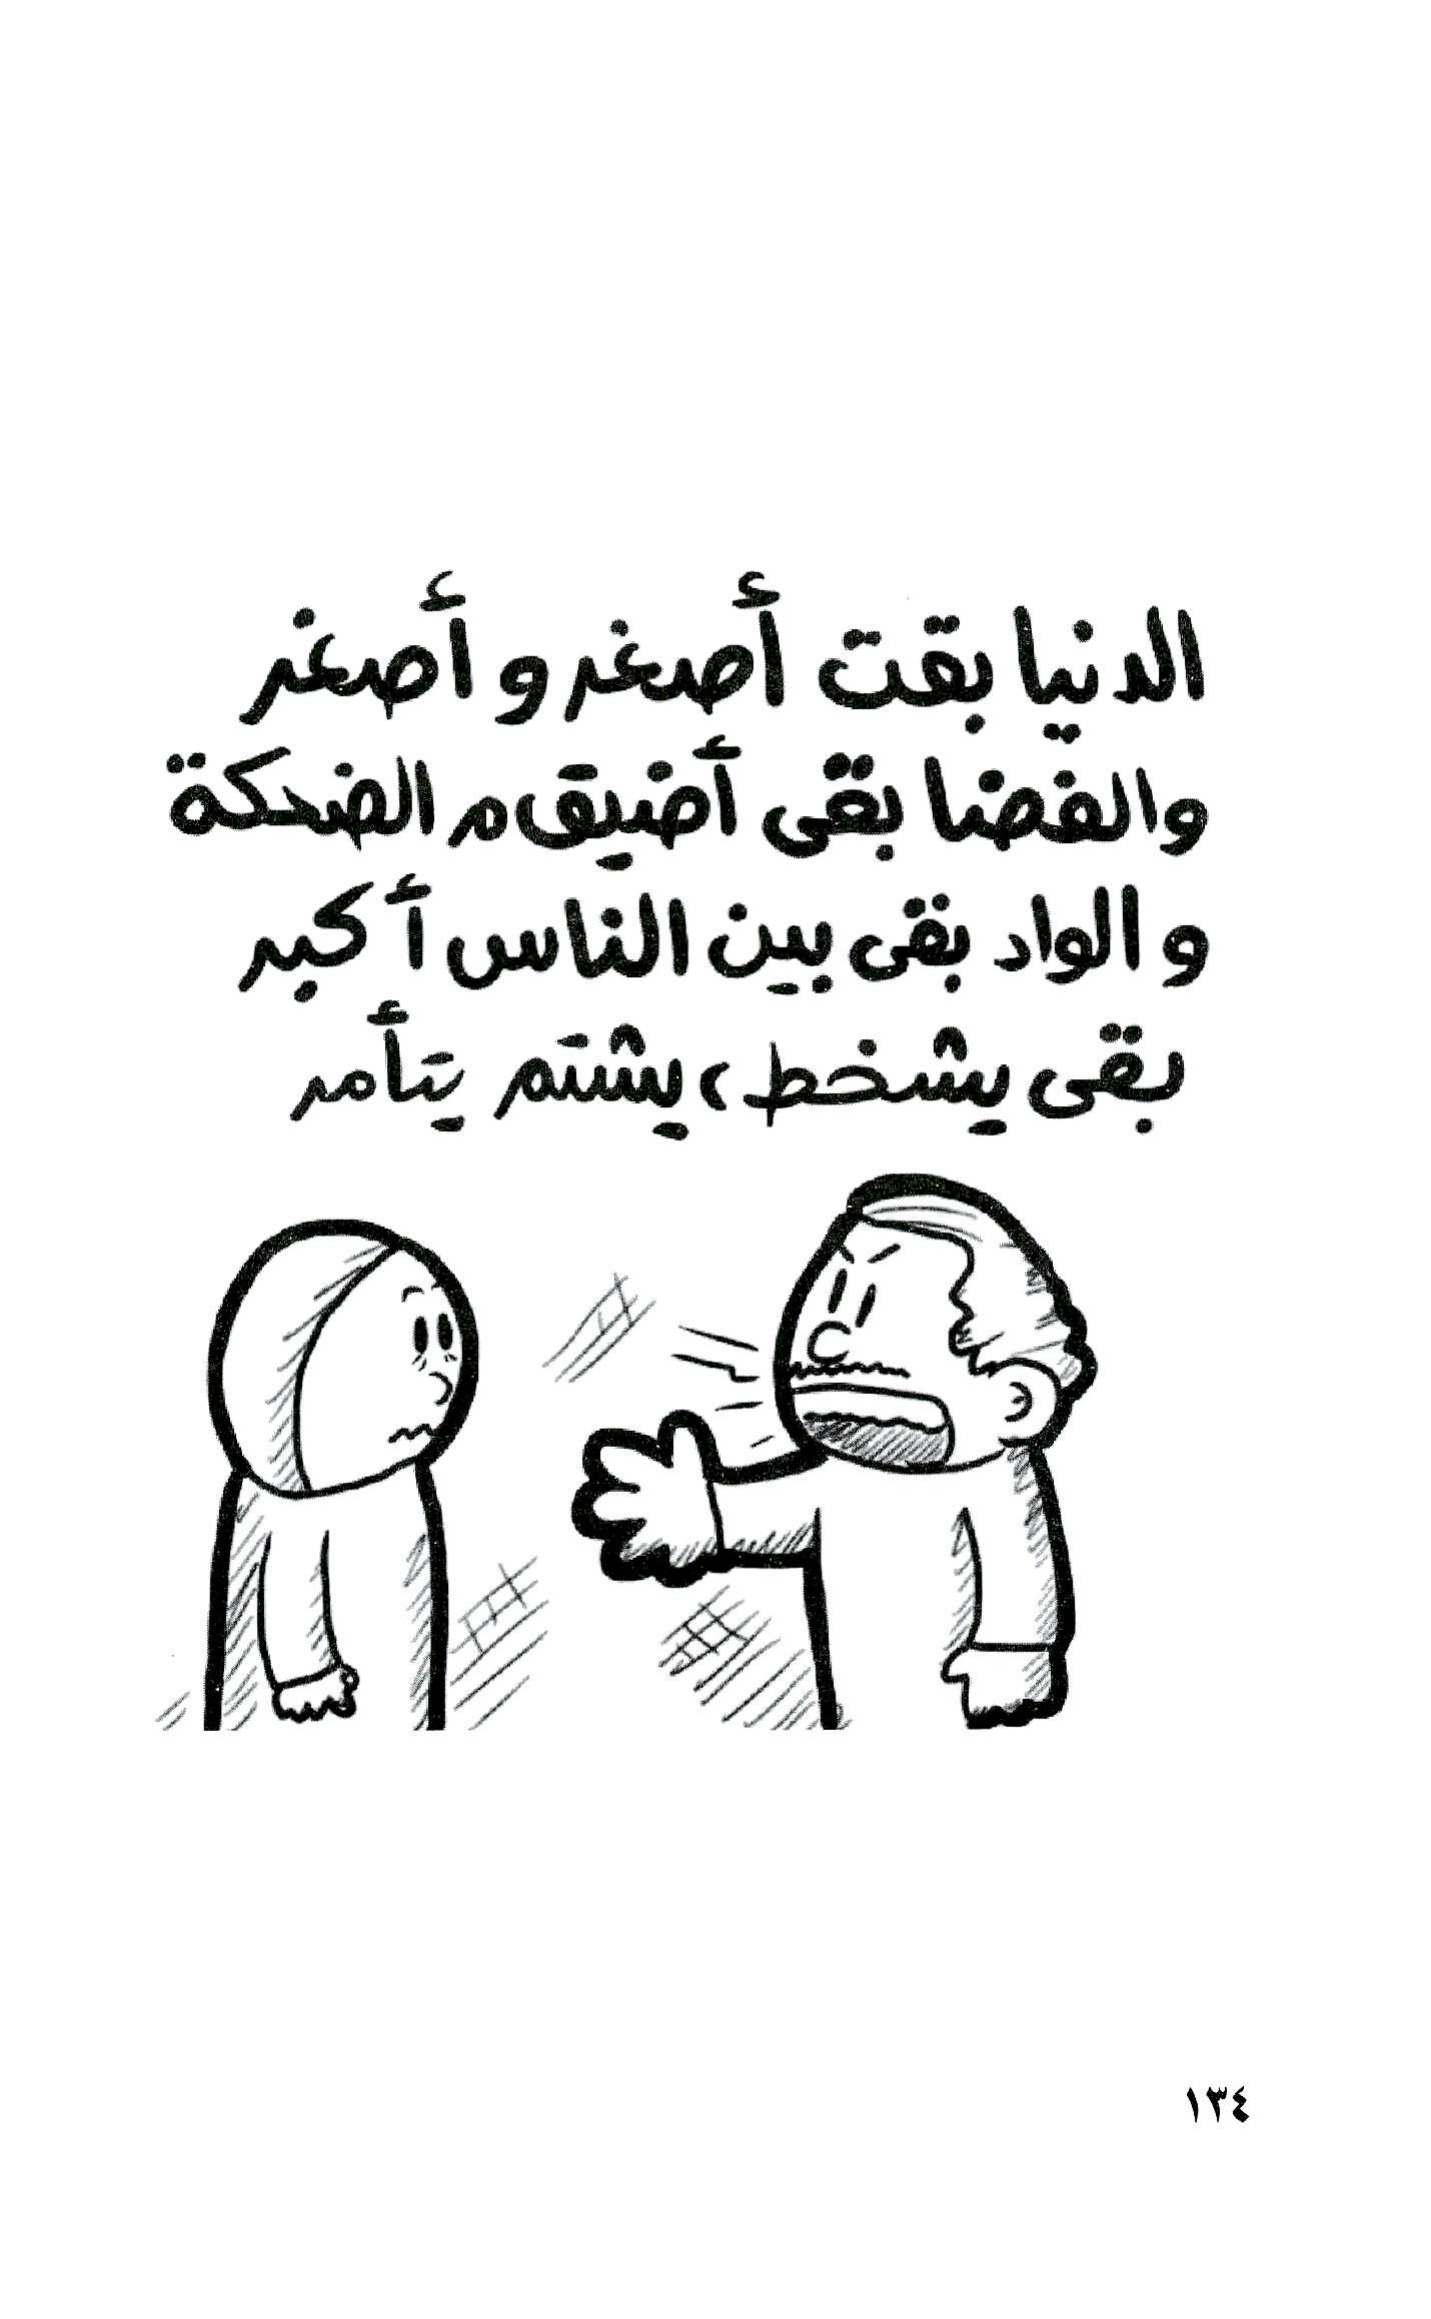 الدنيا بقت أصغر و أصغر
والفضا بقى أضيق م الضحكة
و الواد بقى بين الناس أكبر
بقى يشخط، يشتم يتأمر
١٣٤